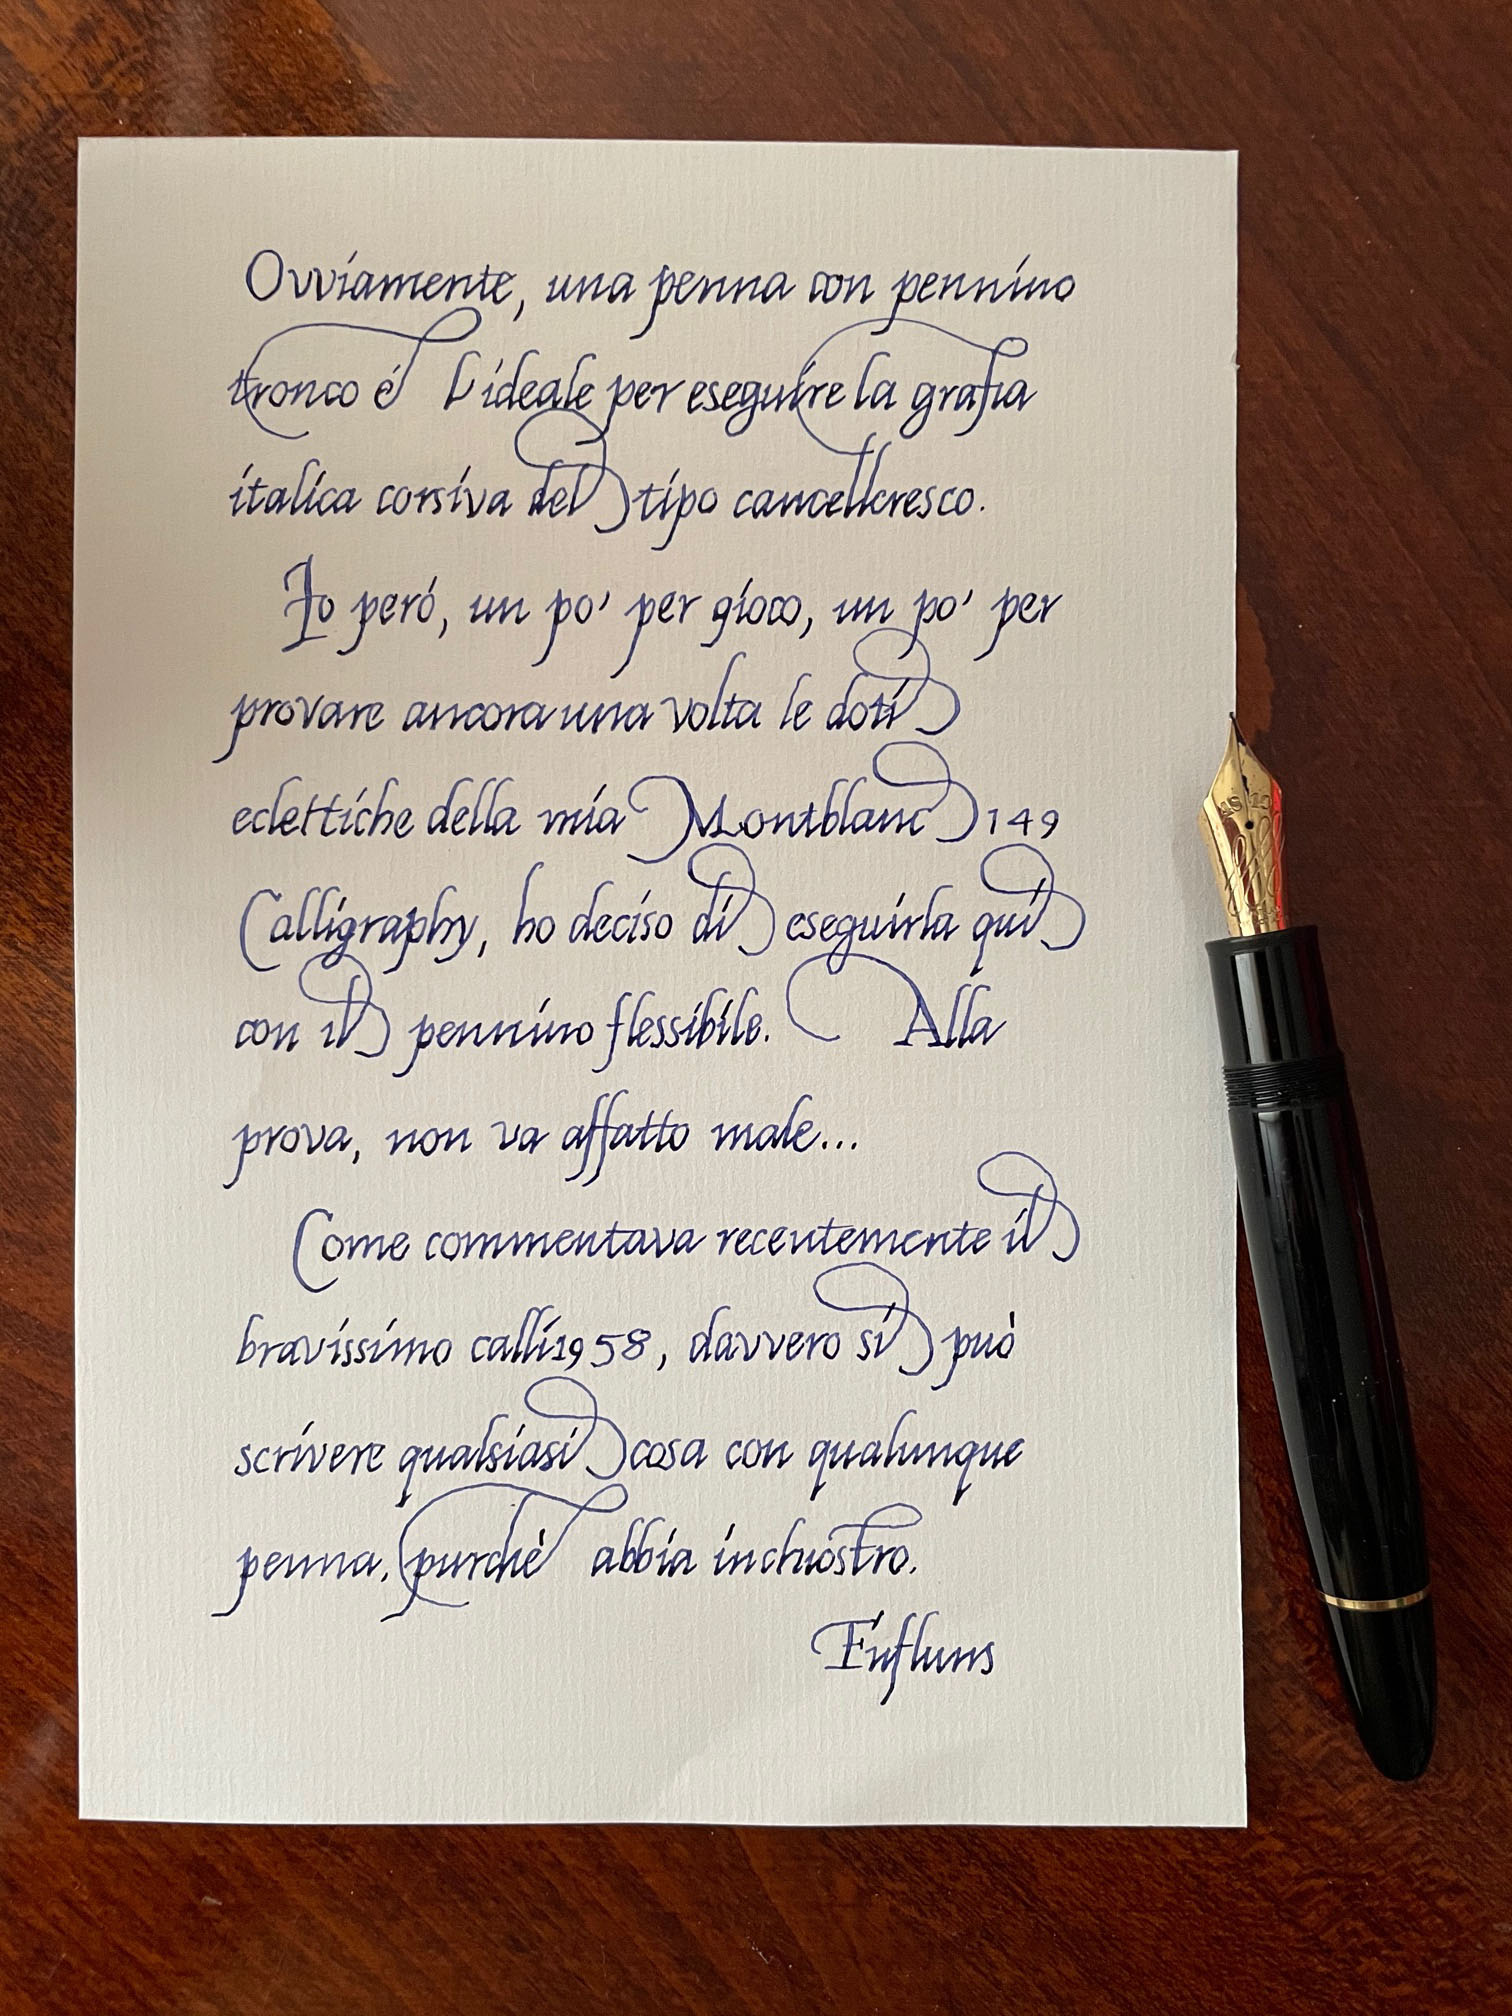 Ovviamente, una penna con pennino
tronco é l'ideale per eseguire la grafia
italica corsiva del tipo cancelleresco.
Io peró, un po' per gioco, un po' per
provare ancora una volta le doti
eclettiche della mia Montblanc 149
Calligraphy, ho deciso di eseguirla qui
con il pennino flessibile. Alla
prova, non va affatto male...
Come commentava recentemente il
bravissimo calli1958, davvero si può
scrivere qualsiasi cosa con qualunque
penna, purchè abbia inchiostro.
Fufluns